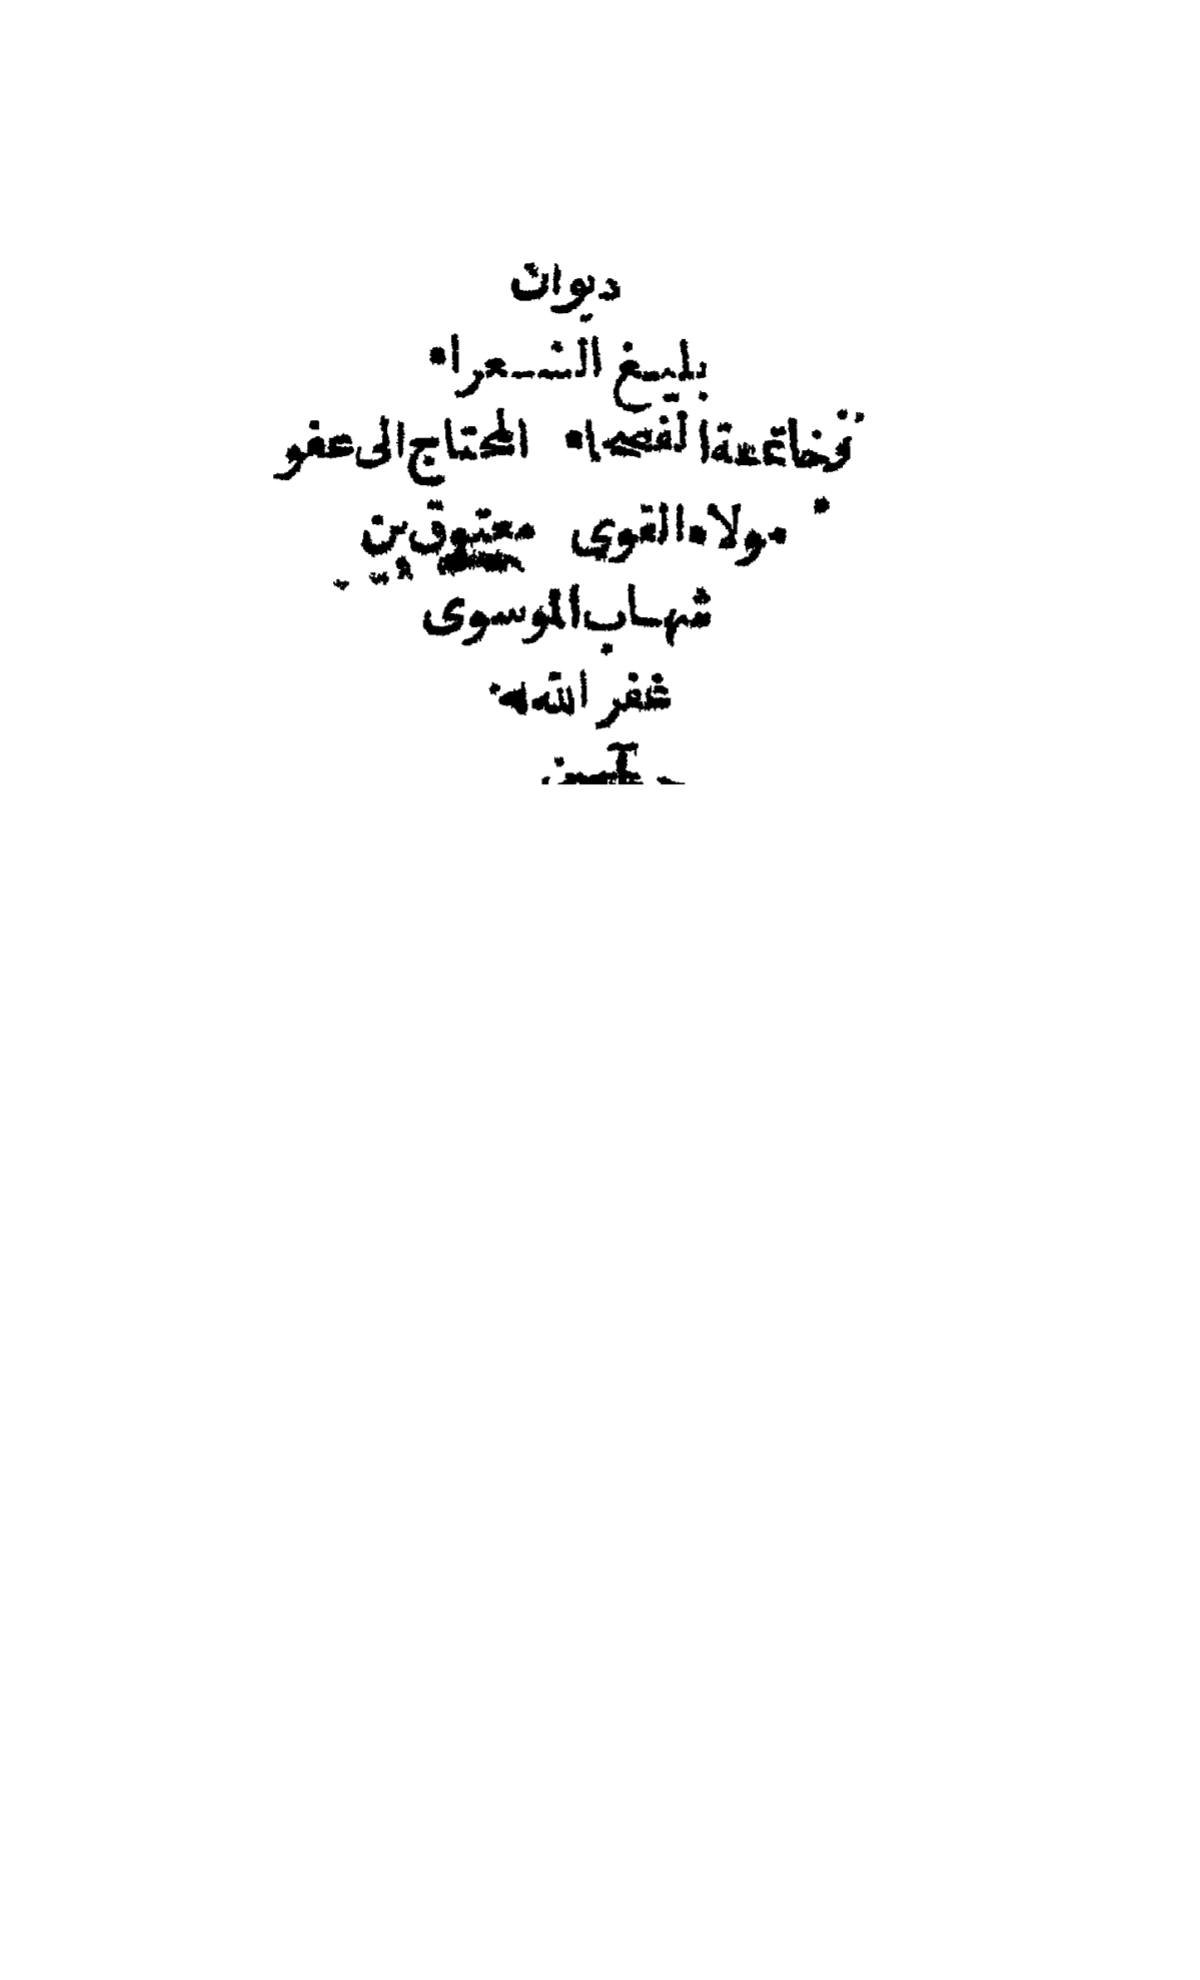 ديوان
بليغ الشعراء
وخاتمة الفصحاء المحتاج الى عفو
مولاه القوى معتوق بن
شهاب الموسوى
غفر الله له